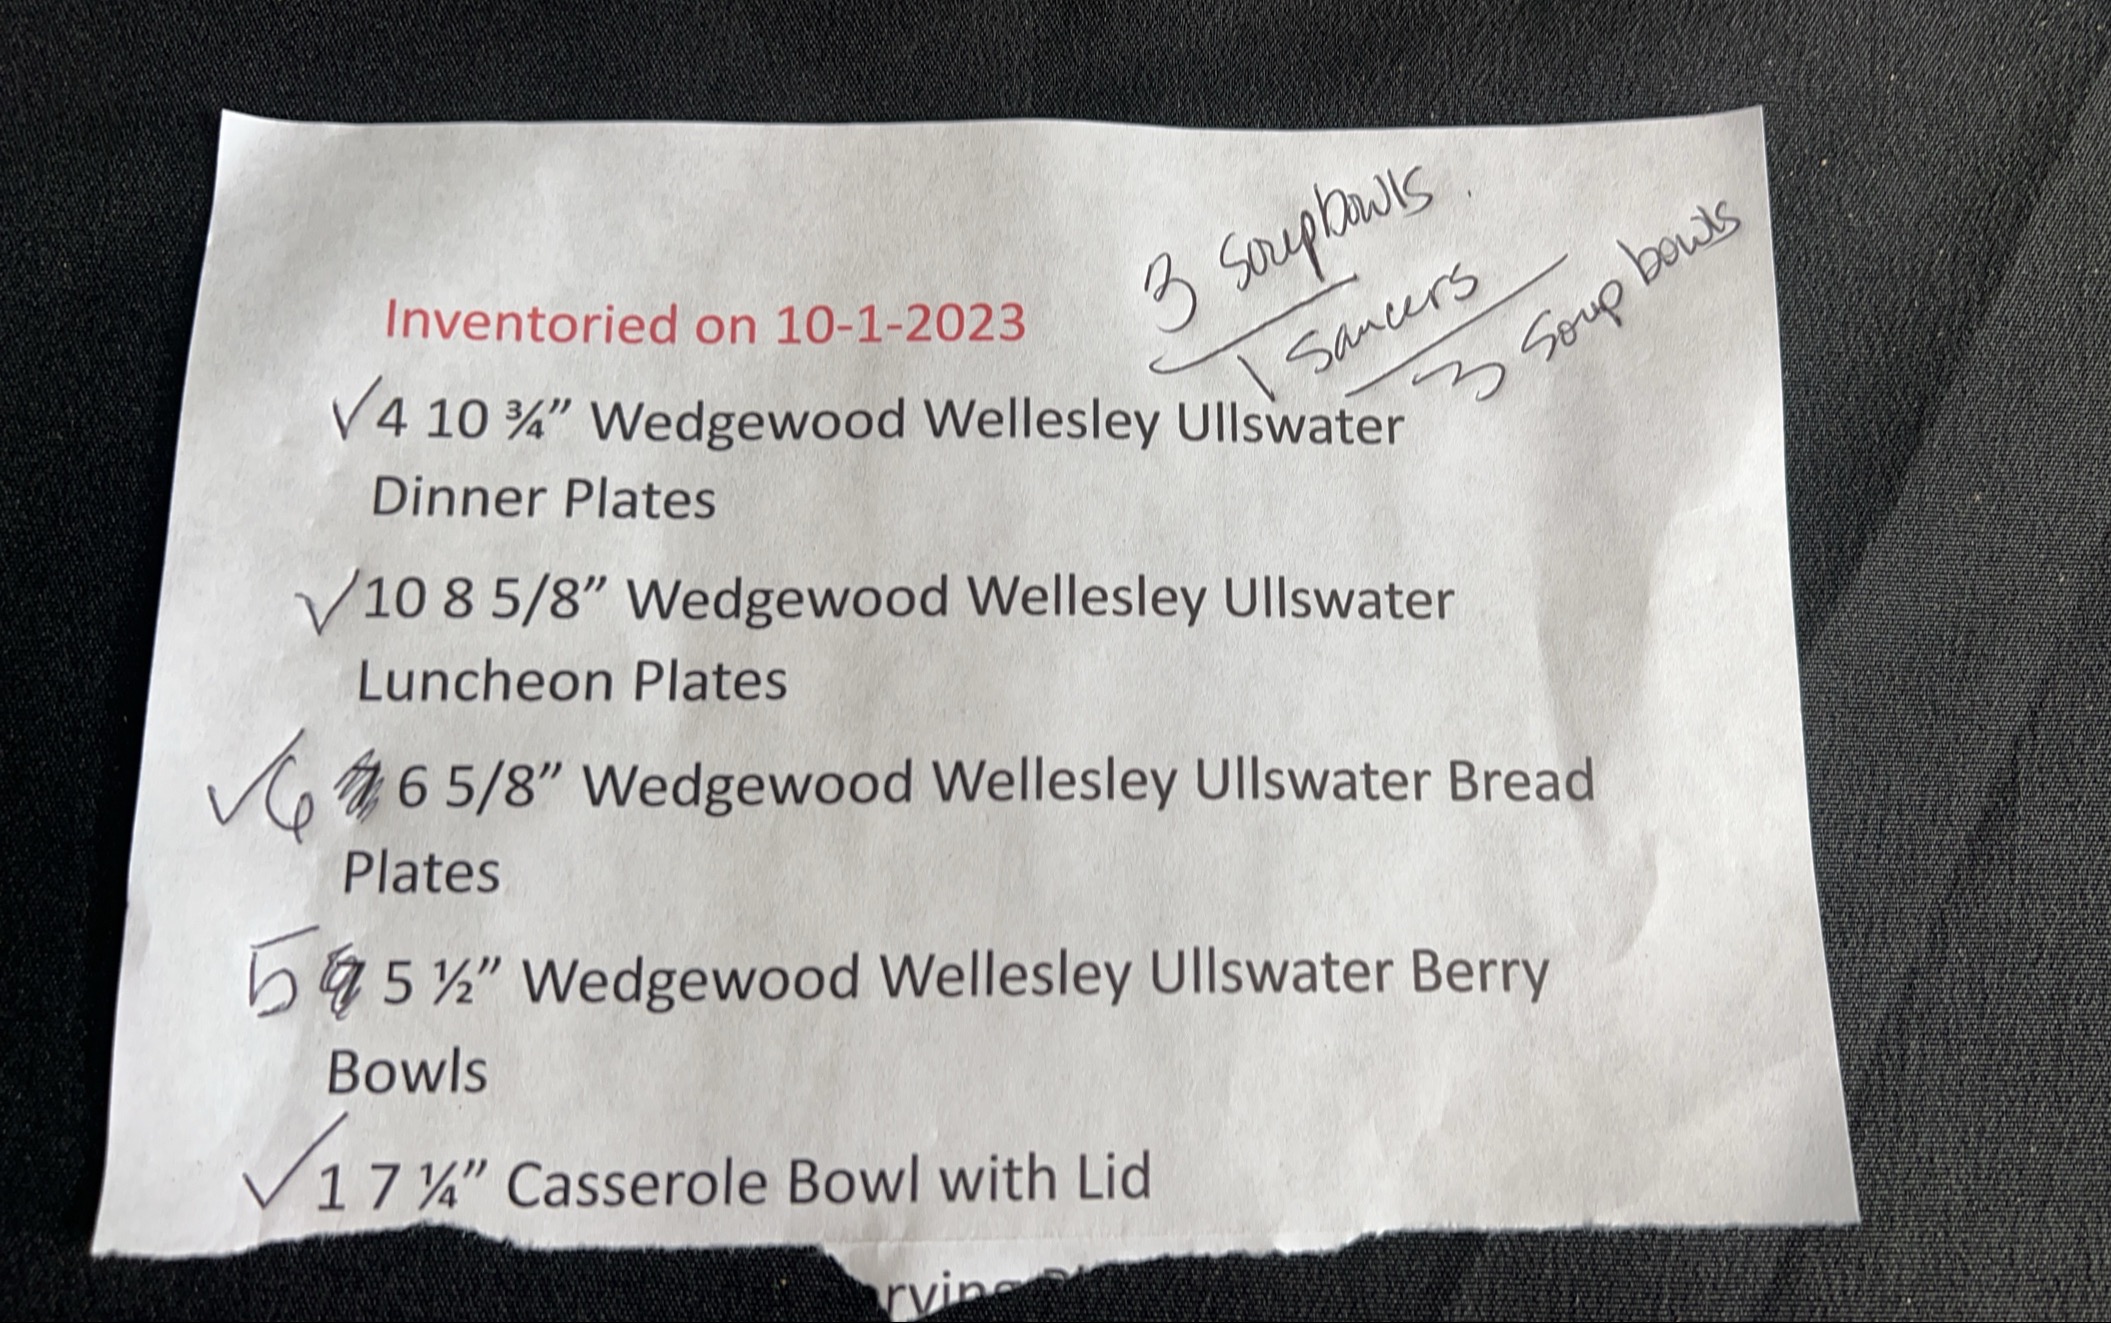 3 Soup bowls
1 Saucers
3 Soup bowls
Inventoried on 10-1-2023
✓4 10 ¾” Wedgewood Wellesley Ullswater
Dinner Plates
✓10 8 5/8” Wedgewood Wellesley Ullswater
Luncheon Plates
✓6 6 5/8” Wedgewood Wellesley Ullswater Bread
Plates
5 5 ½” Wedgewood Wellesley Ullswater Berry
Bowls
✓1 7 ¼” Casserole Bowl with Lid